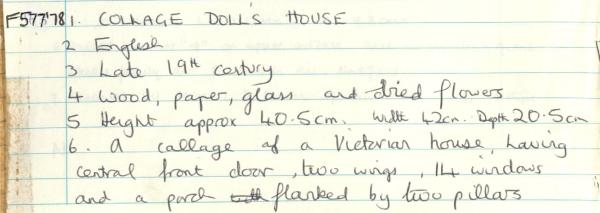 F577'78 1. COLLAGE DOLL'S HOUSE
2 English
3 Late 19th century
4 Wood, paper, glass and dried flowers
5 Height approx 40.5cm. Width 42cm. Depth 20.5cm
6. A collage of a Victorian house, having
central front door, two wings, 14 windows
and a porch flanked by two pillars